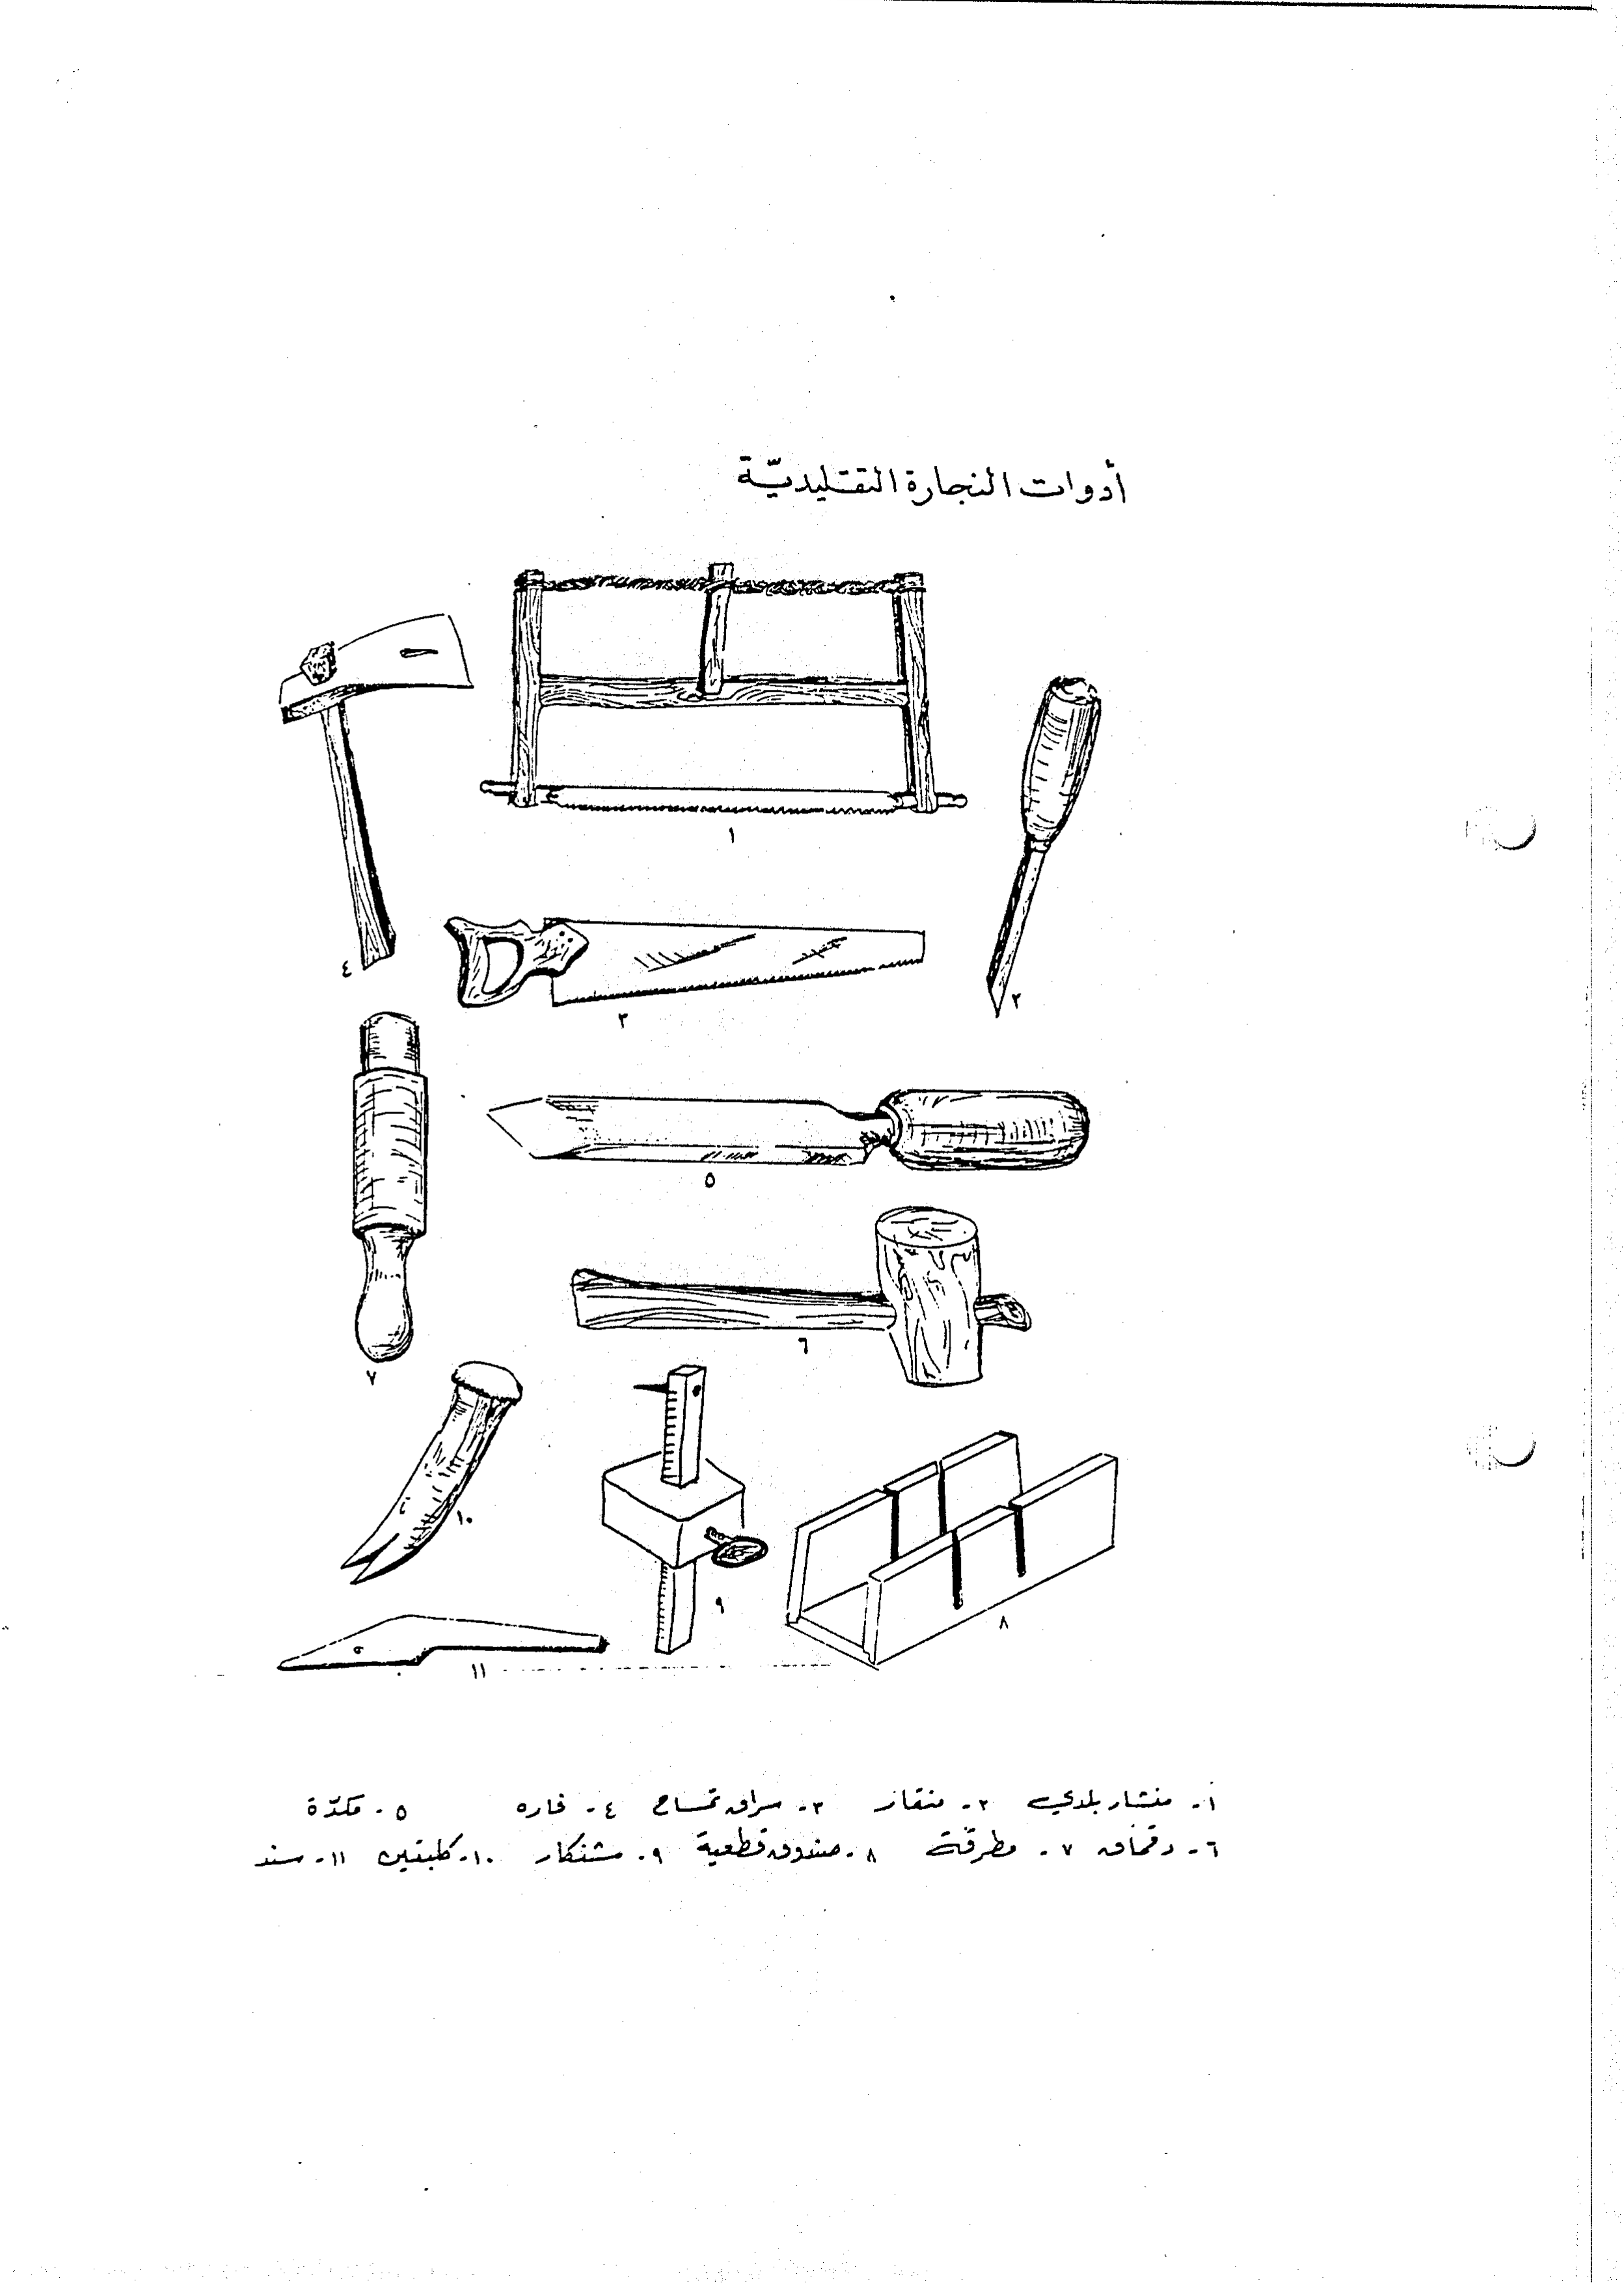 أدوات النجارة التقليديّة
١
٤
٢
٣
٥
٦
٧
١٠
٩
٨
١١
١- منشار بلدي ٢- منقار ٣- سراق تمساح ٤- فاره ٥- مكدّة
٦- دقماق ٧- مطرقة ٨- صندوق قطعية ٩- شنكار ١٠- كلبتين ١١- سند